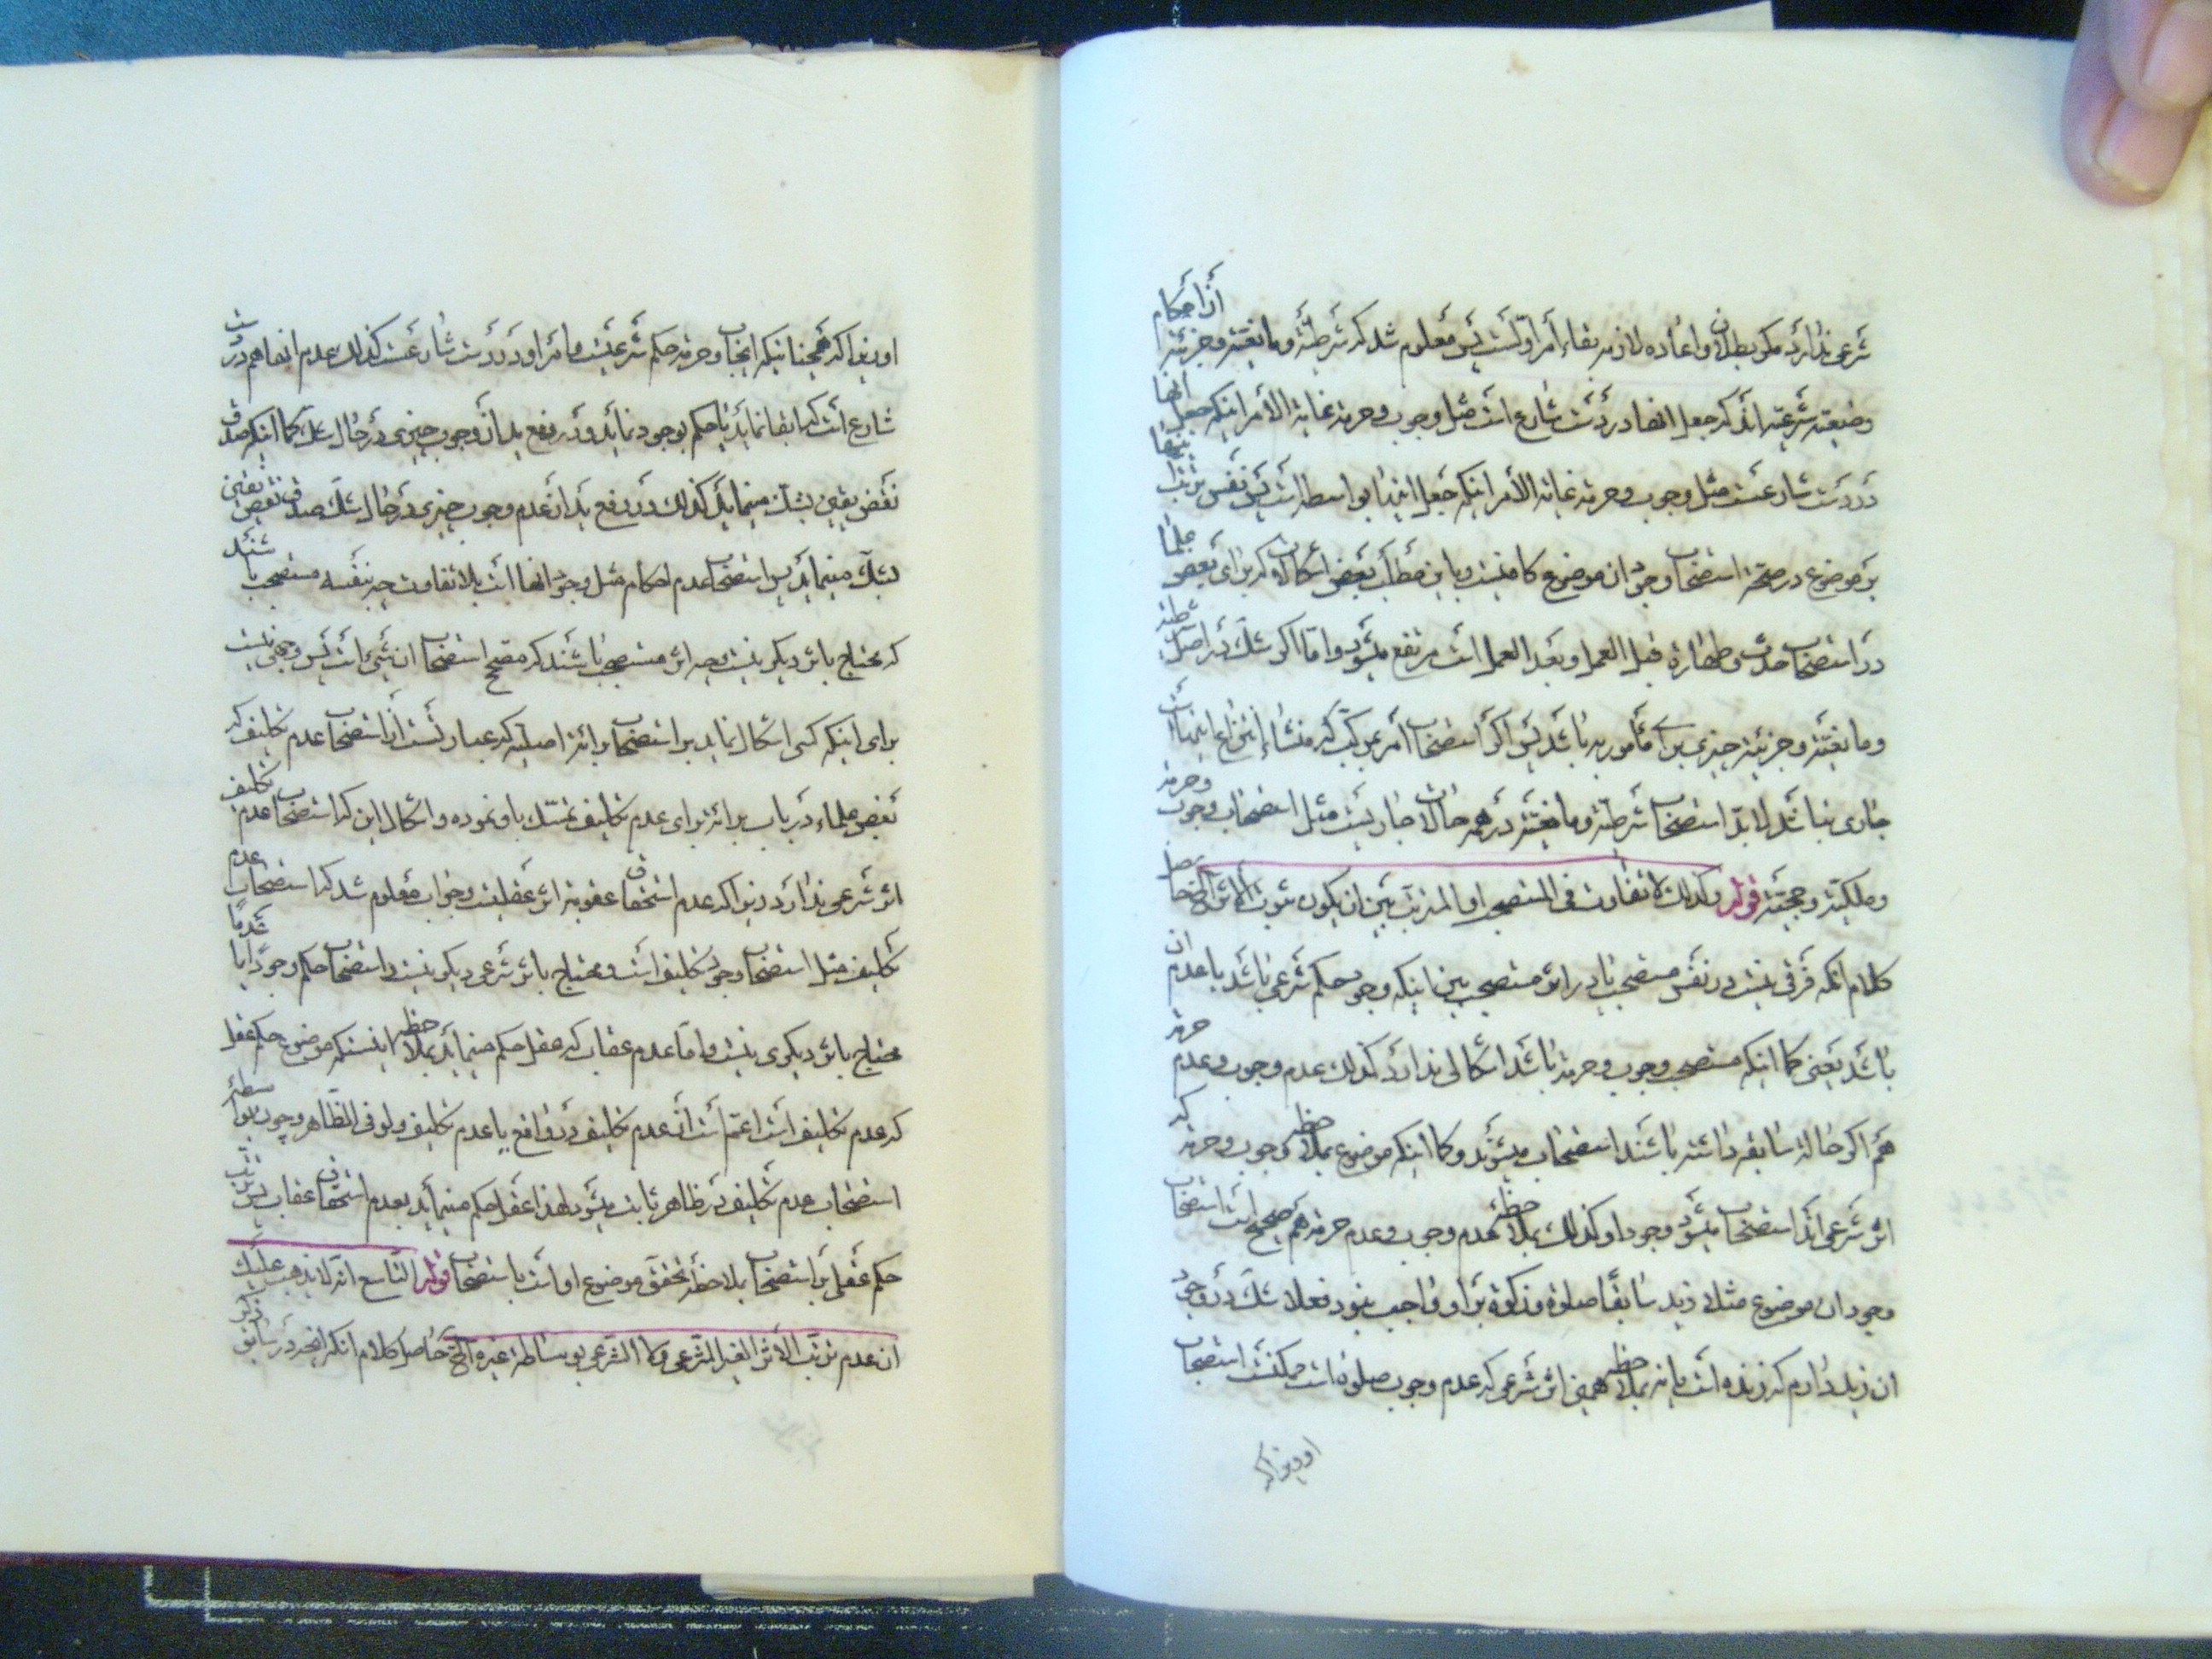 شرعی ندارد مگر بطلان و اعاده لازمه بقاء امر اولست پس معلوم شد که شرطیة و مانعیة و جزئیة از احکام
وضعیه شرعیه‌اند که جعل انها در دست شارع است مثل وجوب و حرمة غایة الأمر اینکه جعل انها
در دست شارعست مثل وجوب و حرمة غایة الأمر اینکه جعل اینها بواسطه است پس نفس ترتب اینها
بر موضوع در صحة استصحاب وجود ان موضوع کافیست و باین مطلب بعض اشکالات که برای بعض علما
در استصحاب حدث و طهارة قبل العمل و بعد العمل است مرتفع میشود و اما اکر شک در اصل شرطیة
و مانعیة و جزئیة چیزی برای مأمور به باشد پس اکر استصحاب امر بمرکب که منشاء انتزاع اینهاست
جاری نباشد لابد استصحاب شرطیة و مانعیة در همه حالات جاریست مثل استصحاب وجوب و حرمة
و ملکیة و حجیة قوله و کذلک لا تفاوت فی المستصحب او المترتب بین ان یکون ثبوت الاثر الخ حاصل
کلام انکه فرقی نیست در نفس مستصحب یا در اثر مستصحب بین اینکه وجود حکم شرعی باشد یا عدم ان
باشد یعنی کما اینکه مستصحب وجوب و حرمة باشد اشکالی ندارد کذلک عدم وجوب و عدم حرمة
هم اکر حالة سابقه داشته باشند استصحاب میشوند و کما اینکه موضوع بملاحظه وجوب و حرمة که
اثر شرعی‌اند استصحاب میشود وجودا و کذلک بملاحظه عدم وجوب و عدم حرمة هم صحیح است استصحاب
وجود ان موضوع مثلا زید سابقا صلوة و زکوة بر او واجب نبود فعلا شک در وجود
ان زید دارم که زنده است یا نه بملاحظه همین اثر شرعی که عدم وجوب صلوة است ممکنست استصحاب
او زیرا که
او زیرا که همچنانیکه ایجاب و حرمة حکم شرعیست و امر او در دست شارعست کذلک عدم انها هم در دست
شارع است که ابقا نماید یا حکم بوجود نماید و در رفع ید از وجوب چیزی در حال شک کما اینکه صدق
نقض یقین بشک مینماید کذلک در رفع ید از عدم وجوب چیزی در حال شک صدق نقض یقین
بشک مینماید پس استصحاب عدم احکام مثل وجود انها است بلا تفاوت چه بنفسه مستصحب باشند
که محتاج باثر دیکر نیست و چه اثر مستصحب باشند که مصحح استصحاب ان شیء است پس وجهی نیست
برای اینکه کسی اشکال نماید بر استصحاب برائة اصلیه که عبارتست از استصحاب عدم تکلیف که
بعض علماء در باب برائة برای عدم تکلیف تمسک باو نموده و اشکال این که استصحاب عدم تکلیف
اثر شرعی ندارد زیرا که عدم استحقاق عقوبة اثر عقلیست و جواب معلوم شد که استصحاب عدم
تکلیف مثل استصحاب وجود تکلیف است و محتاج باثر شرعی دیکر نیست و استصحاب حکم وجودا یا عدما
محتاج باثر دیکری نیست و اما عدم عقاب که عقل حکم مینماید بملاحظه اینستکه موضوع حکم عقل
که عدم تکلیف است اعم است از عدم تکلیف در واقع یا عدم تکلیف و لو فی الظاهر و چون بواسطه
استصحاب عدم تکلیف در ظاهر ثابت میشود لهذا عقل حکم مینماید بعدم استحقاق عقاب پس ترتب
حکم عقلی بر استصحاب بملاحظه تحقق موضوع او است باستصحاب قوله التاسع انه لا یذهب علیک
ان عدم ترتب الاثر الغیر الشرعی و لا الشرعی بوساطة غیره الخ حاصل کلام انکه انچه در سابق ذکر